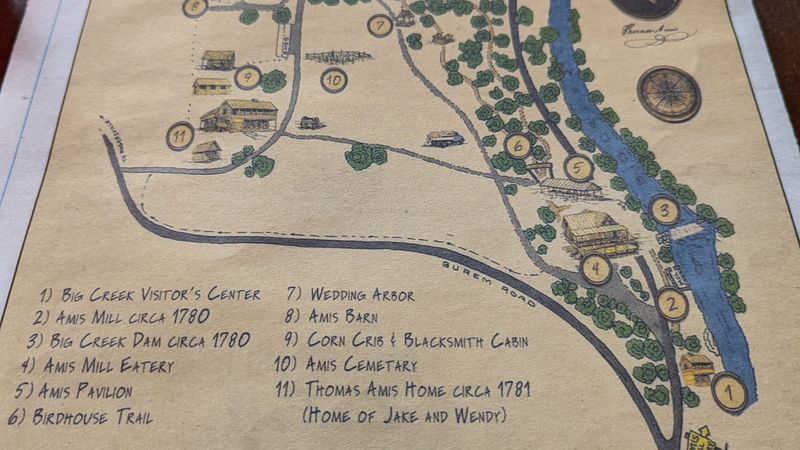 8
7
Thomas Amis
9
10
11
6
5
3
4
2
1
Burem Road
1) Big Creek Visitor's Center
2) Amis Mill circa 1780
3) Big Creek Dam circa 1780
4) Amis Mill Eatery
5) Amis Pavilion
6) Birdhouse Trail
7) Wedding Arbor
8) Amis Barn
9) Corn Crib & Blacksmith Cabin
10) Amis Cemetary
11) Thomas Amis Home circa 1781
(Home of Jake and Wendy)